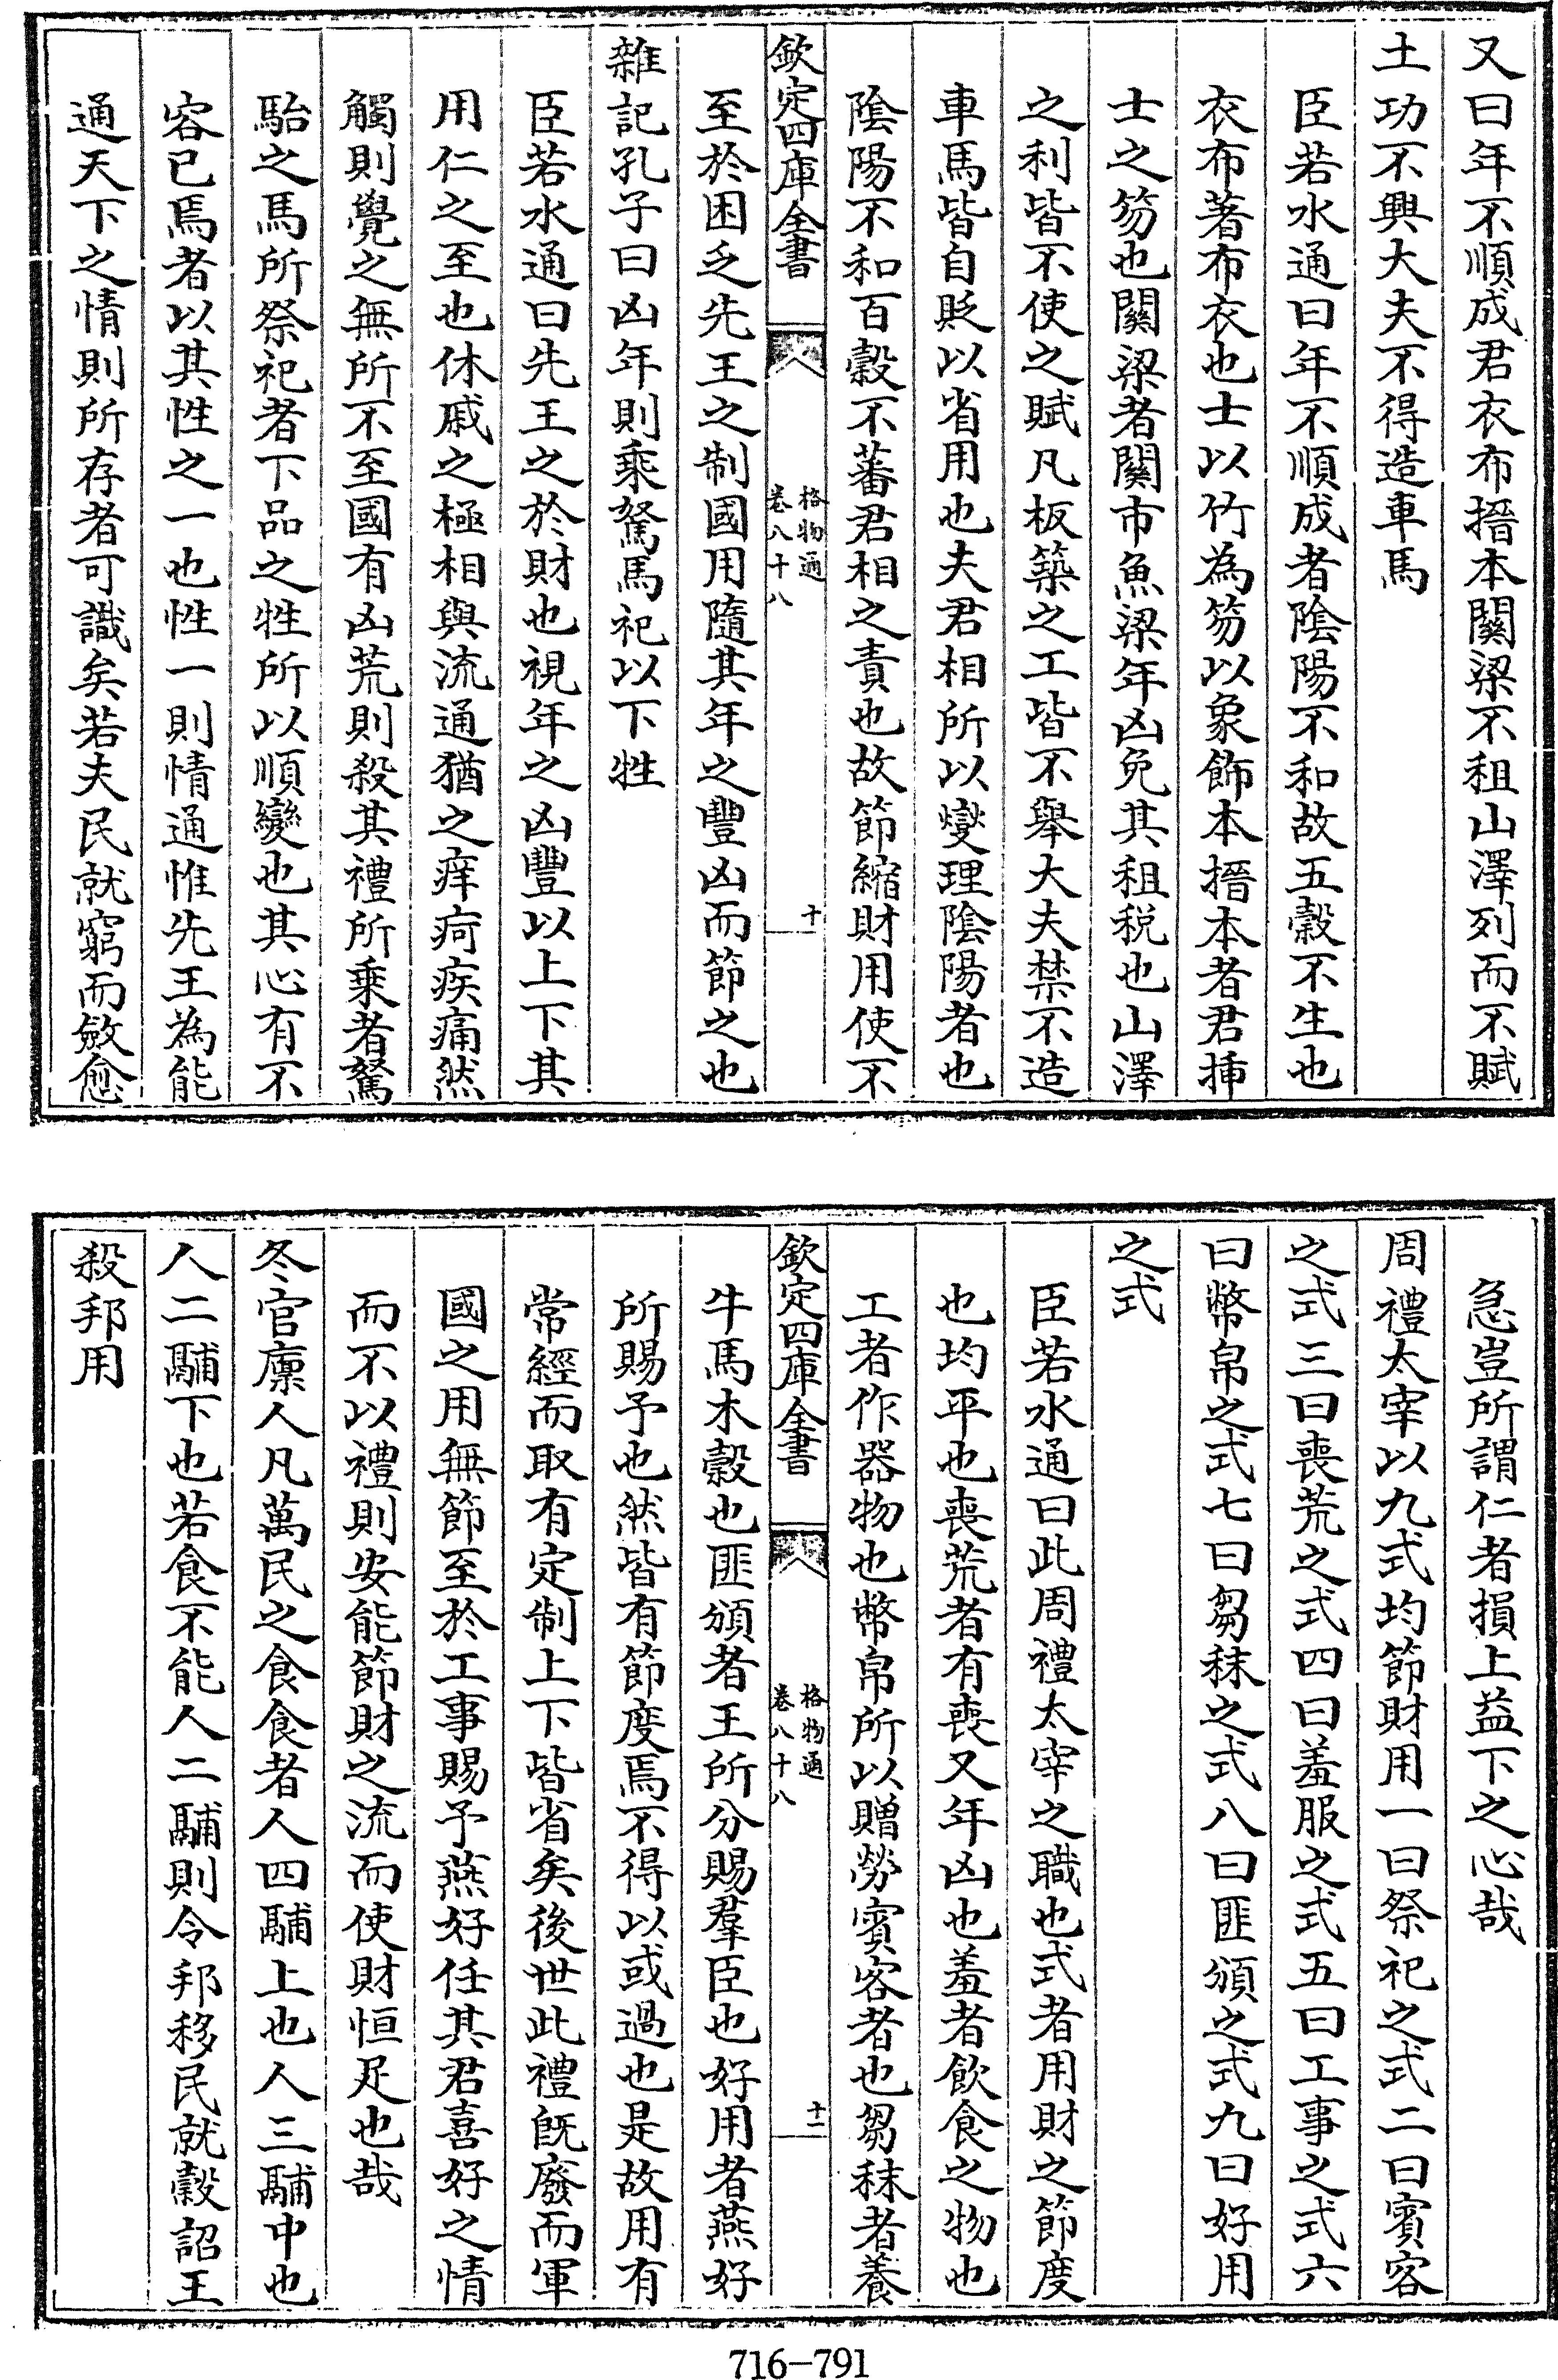 又曰年不順成君衣布搢本關梁不租山澤列而不賦
土功不興大夫不得造車馬
臣若水通曰年不順成者陰陽不和故五穀不生也
衣布著布衣也士以竹為笏以象飾本搢本者君揷
士之笏也關梁者關市魚梁年凶免其租税也山澤
之利皆不使之賦凡板築之工皆不舉大夫禁不造
車馬皆自貶以省用也夫君相所以燮理陰陽者也
陰陽不和百穀不蕃君相之責也故節縮財用使不
欽定四庫全書
格物通
卷八十八
十
至於困乏先王之制國用隨其年之豐凶而節之也
雜記孔子曰凶年則乘駑馬祀以下牲
臣若水通曰先王之於財也視年之凶豐以上下其
用仁之至也休戚之極相與流通猶之痒疴疾痛然
觸則覺之無所不至國有凶荒則殺其禮所乘者駑
駘之馬所祭祀者下品之牲所以順變也其心有不
容已焉者以其性之一也性一則情通惟先王為能
通天下之情則所存者可識矣若夫民就窮而斂愈
急豈所謂仁者損上益下之心哉
周禮太宰以九式均節財用一曰祭祀之式二曰賓客
之式三曰喪荒之式四曰羞服之式五曰工事之式六
曰幣帛之式七曰芻秣之式八曰匪頒之式九曰好用
之式
臣若水通曰此周禮太宰之職也式者用財之節度
也均平也喪荒者有喪又年凶也羞者飲食之物也
工者作器物也幣帛所以贈勞賓客者也芻秣者養
欽定四庫全書
格物通
卷八十八
十一
牛馬木穀也匪頒者王所分賜羣臣也好用者燕好
所賜予也然皆有節度焉不得以或過也是故用有
常經而取有定制上下皆省矣後世此禮旣廢而軍
國之用無節至於工事賜予燕好任其君喜好之情
而不以禮則安能節財之流而使財恒足也哉
冬官廩人凡萬民之食食者人四鬴上也人三鬴中也
人二鬴下也若食不能人二鬴則令邦移民就穀詔王
殺邦用
716-791